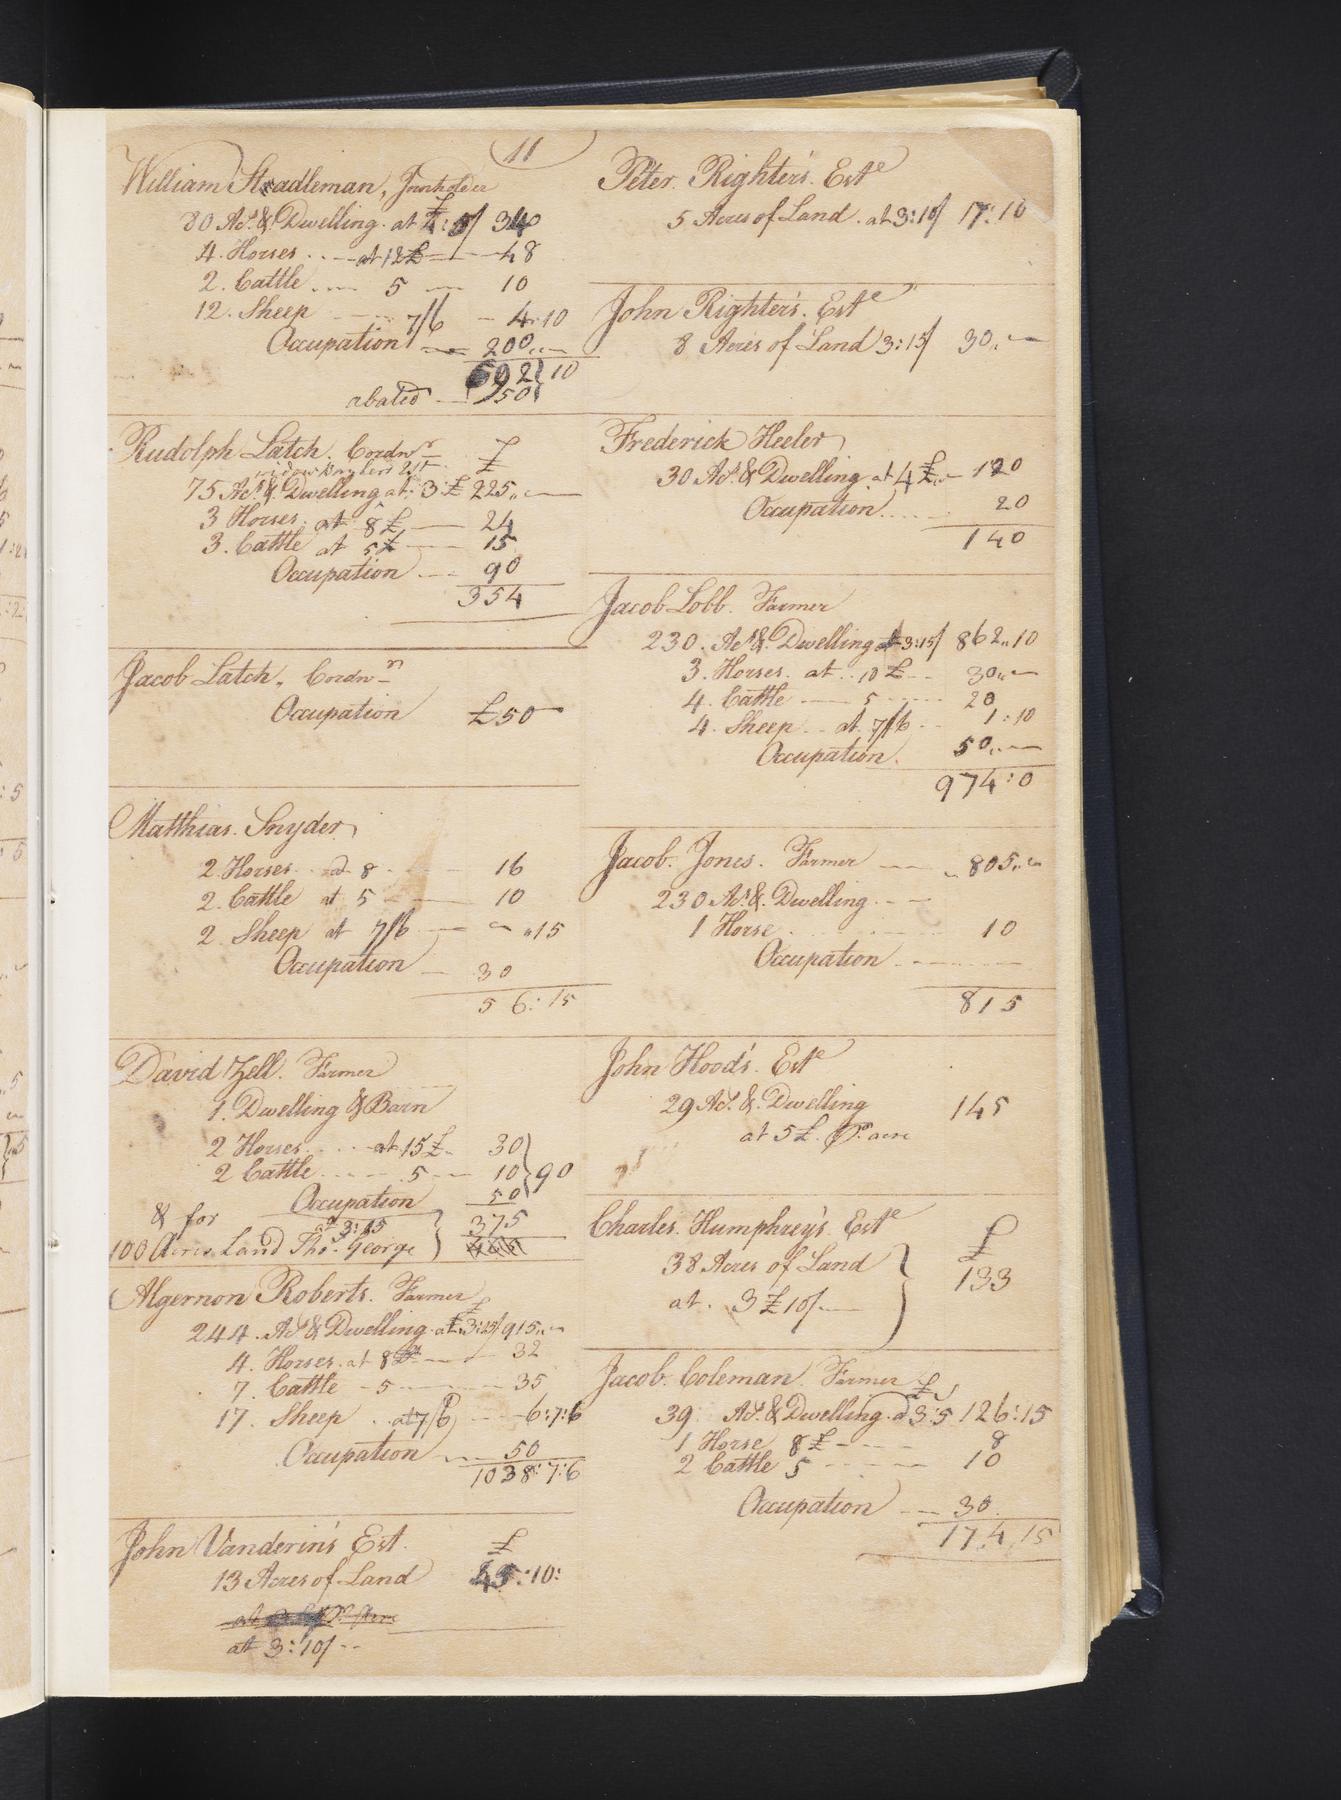 11
William Stradleman, Innholder
80 Acs. & Dwelling. at £4:5/ 340
4. Horses at 12£ 48
2. Cattle 5 10
12. Sheep 7/6 4:10
Occupation 200
592 10
abated 50
Rudolph Latch. Cordnr
75 Acs. & Dwelling at 3£ 225
3 Horses. at 8£ 24
3. Cattle at 5£ 15
Occupation 90
354
Jacob Latch. Cordnn
Occupation £50
Matthias. Snyder
2 Horses at 8 16
2. Cattle at 5 10
2 Sheep at 7/6 "15
Occupation 30
56:15
David Zell. Farmer
1. Dwelling & Barn
2 Horses at 15£ 30
2 Cattle 5 10 90
Occupation 50
& for at 3:15 375
100 Acres Land Tho. George
Algernon Roberts. Farmer £
244. Acs & Dwelling at 3:15/ 915
4. Horses. at 8£ 32
7. Cattle 5 35
17. Sheep at 7/6 6:7:6
Occupation 50
1038:7:6
John Vanderin's Est. £
13 Acres of Land 45:10:
at 3:10/
Peter. Righter's. Este
5 Acres of Land. at 3:10/ 17:10
John Righter's. Este
8 Acres of Land 3:15/ 30
Frederick Heeler
30 Acs & Dwelling at 4£ 120
Occupation 20
140
Jacob Lobb. Farmer
230. Acs & Dwelling at 3:15/ 862"10
3. Horses. at 10£ 30
4. Cattle 5 20
4. Sheep at 7/6 1:10
Occupation. 50
974:0
Jacob. Jones. Farmer 805
230 Acs. & Dwelling
1 Horse 10
Occupation
815
John Hood's. Este
29 Acs. & Dwelling 145
at 5£. Pr. acre
Charles. Humphrey's. Este £
38 Acres of Land 133
at. 3£10/
Jacob. Coleman. Farmer £
39. Acs. & Dwelling. at 3:5 126:15
1 Horse 8£ 8
2 Cattle 5 10
Occupation 30
174,15